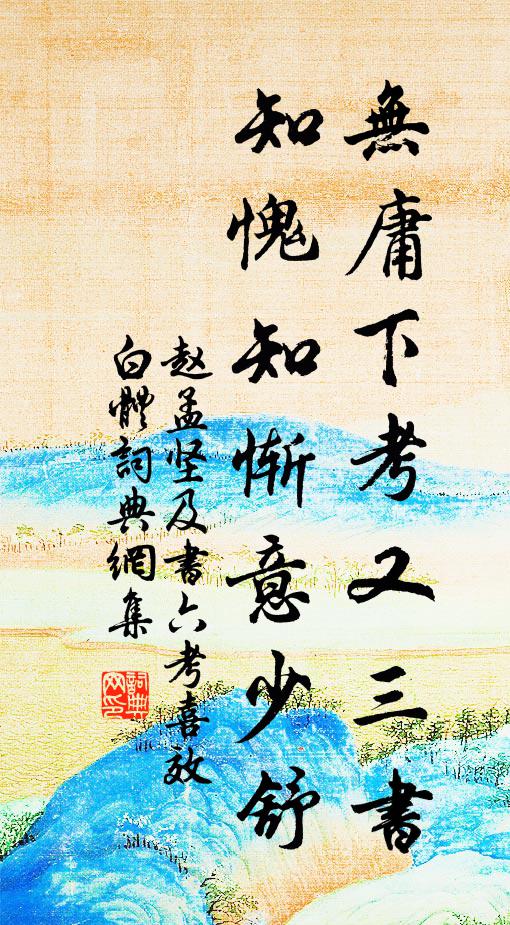 無庸下考又三書
知愧知慚意少舒
赵孟坚及書六考喜效
白體詞典網集
詞典網印